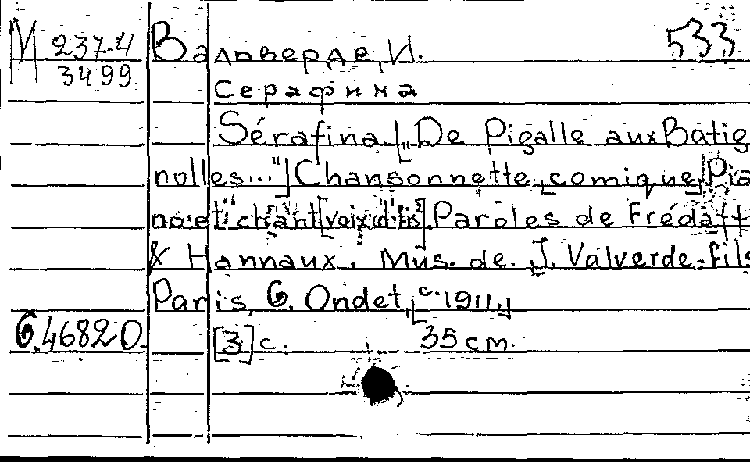 М 237-4 Вальверде, И. 533
3499
Серафина
Sérafina. ["De Pigalle aux Batig
nolles..."] Chansonnette comique. Pia
no et chant Paroles de Fréd
& Hannaux. Mus. de. J. Valverde-fils
Paris, G. Ondet, [c. 1911.]
G.46820. [3] с. 35 см.